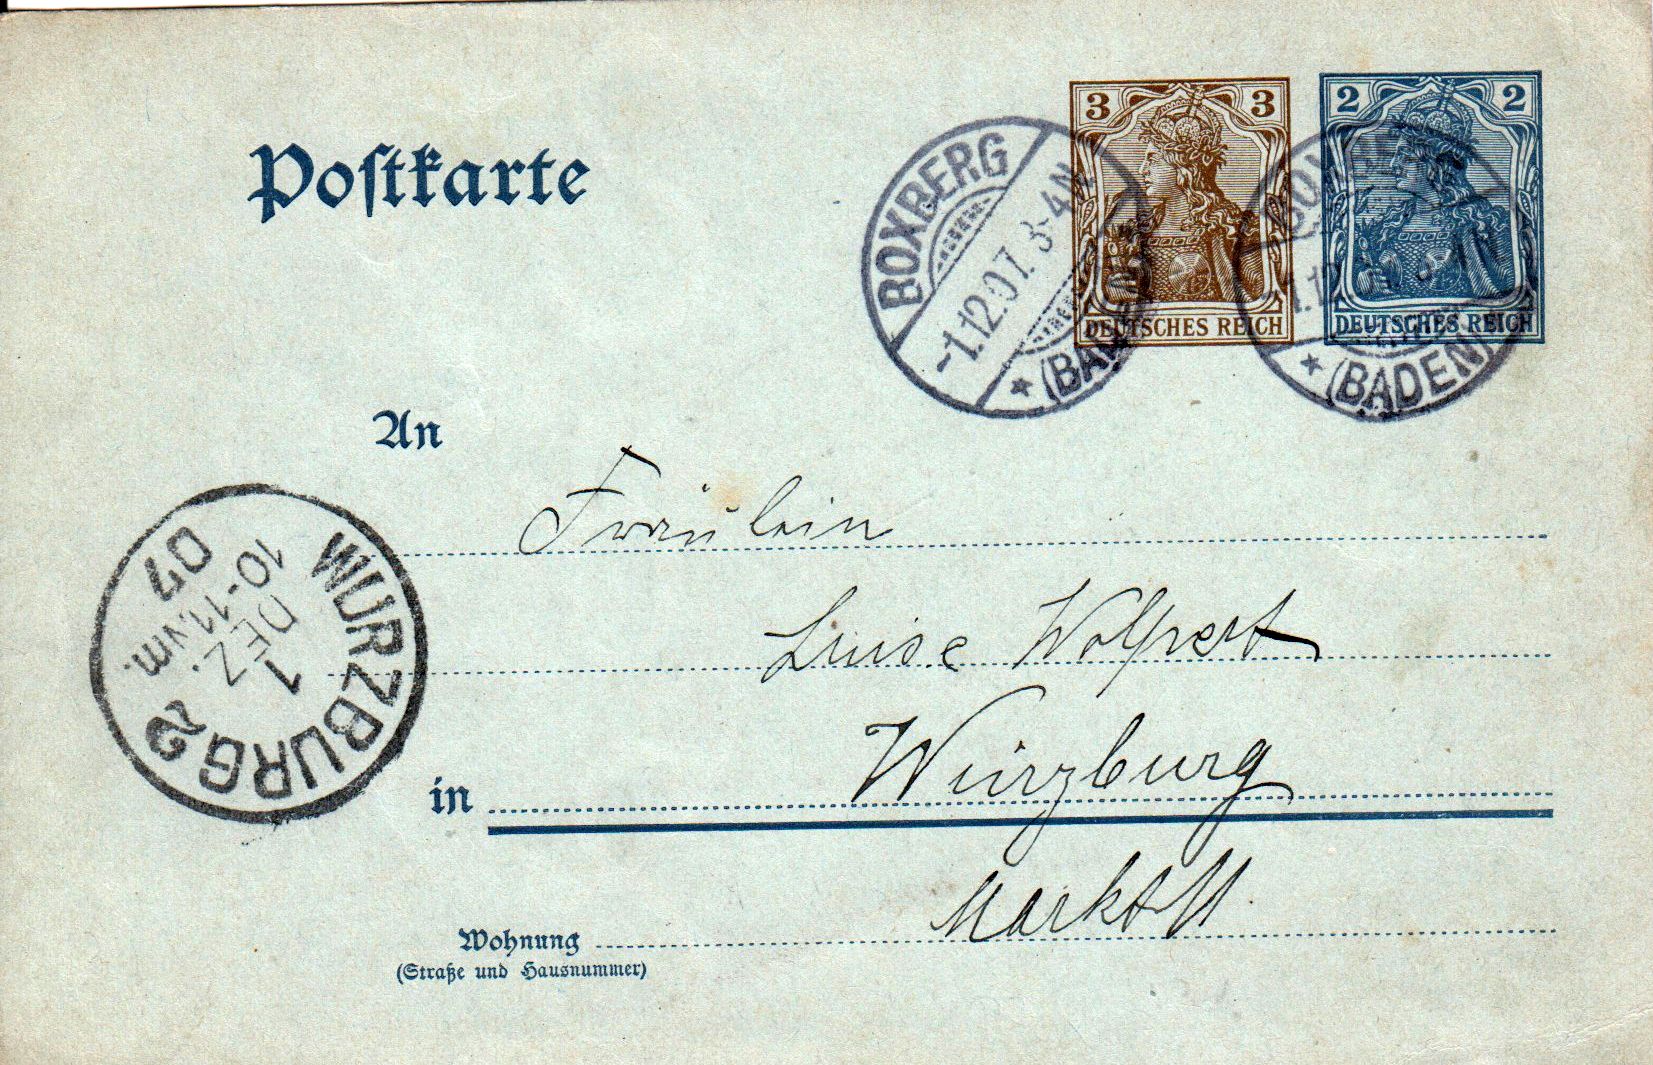 Postkarte
3 3
DEUTSCHES REICH
2 2
DEUTSCHES REICH
BOXBERG
-1.12.07. 3-4N
* (BADEN)
BOXBERG
1.12.07. 3-4N
* (BADEN)
An
Fräulein
Luise Wolpert
in Würzburg
Wohnung
(Straße und Hausnummer)
WURZBURG 2
1
DEZ.
10-11.Nm.
07